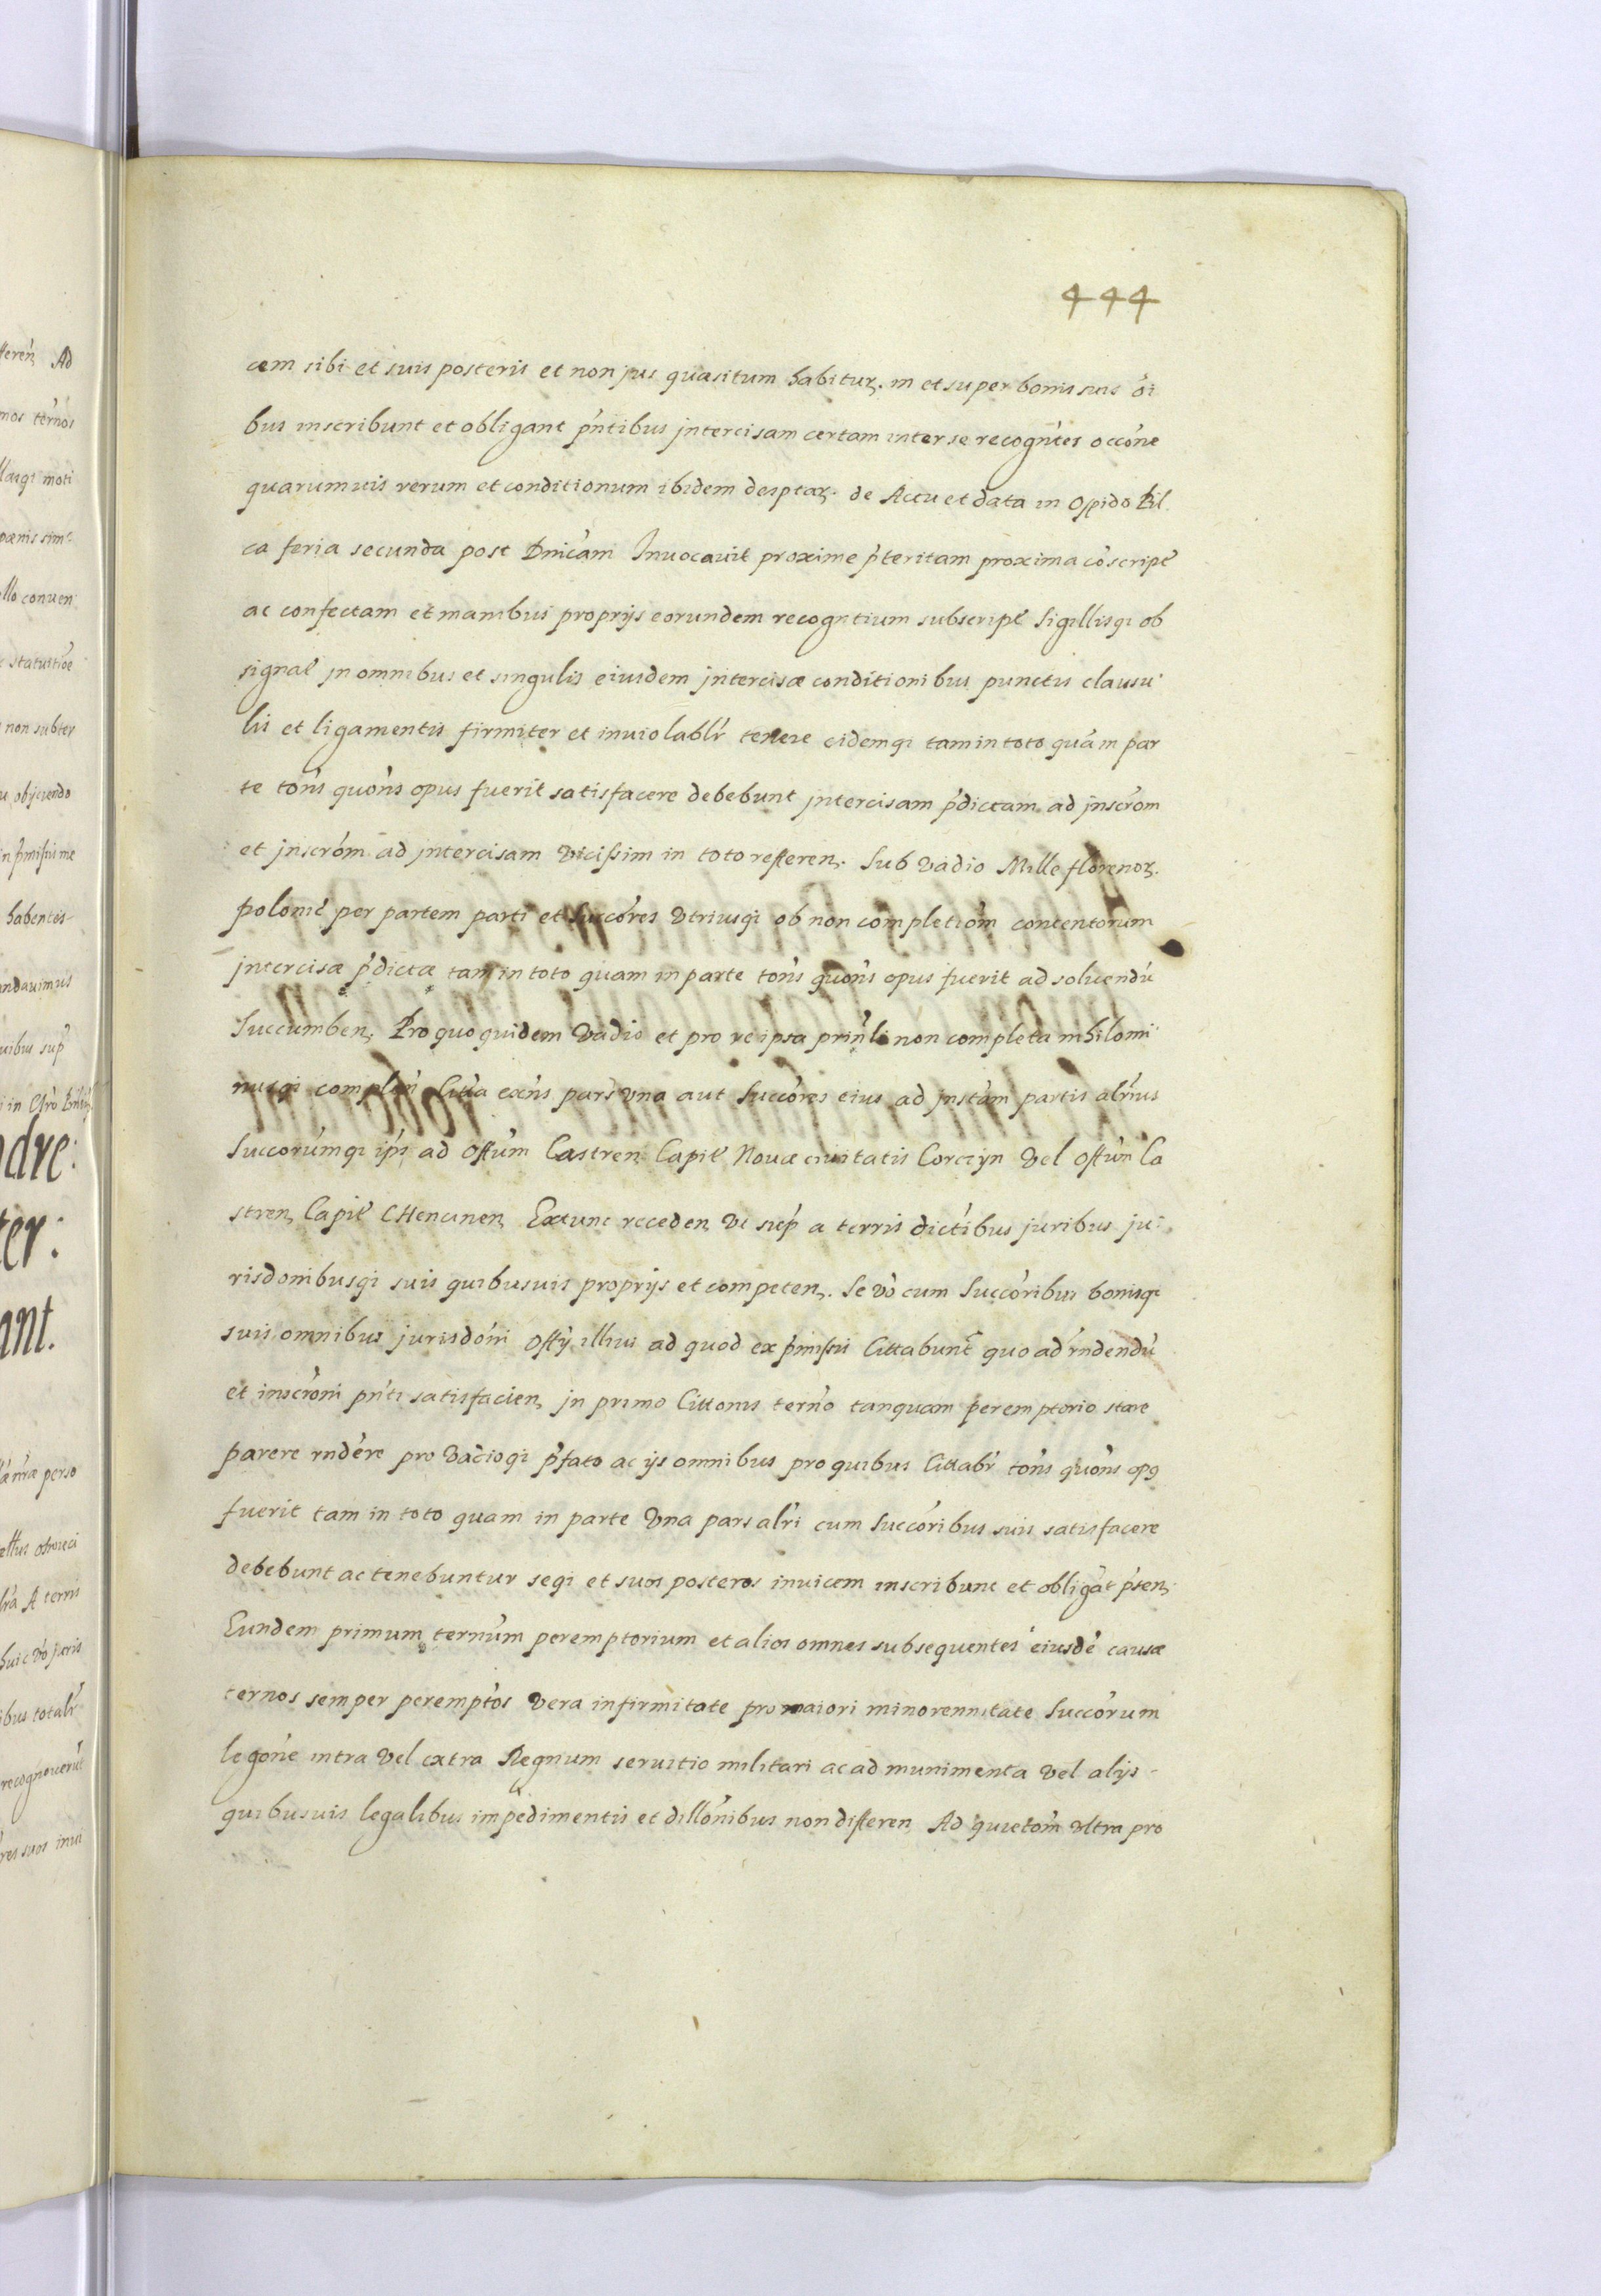 444
cem sibi et suis posteris et non jus quasitum habitur. in et super bonis suis oi
bus inscribunt et obligant pntibus jntercisam certam inter se recogntes occone
quarumuis rerum et conditionum ibidem desptar. de Actu et data in Oppido Pil
ca feria secunda post Dnicam Inuocauit proxime pteritam proxima coscript
ac confectam et manibus proprijs eorundem recogntium subscript Sigillisqi ob
signat jn omnibus et singulis eiusdem jntercisæ conditionibus punctis clausu
lis et ligamentis firmiter et inuiolablr tenere eidemqi tam in toto quam par
te tons quons opus fuerit satisfacere debebunt jntercisam pdictam ad jnscrom
et jnscrom ad jntercisam vicissim in toto referen. Sub vadio Mille florenor.
polonic per partem parti et Succores vtriusqi ob non completiom contentorum
jntercisæ pdictæ tam in toto quam in parte tons quons opus fuerit ad soluendu
Succumben. Pro quo quidem vadio et pro re ipsa prinli non completa nihilomi
nusqi complen Citta exns pars vna aut Succores eius ad jnstam partis alrius
Succorumqi ips ad Offum Castren Capit Nouæ ciuitatis Corczyn vel Offum Ca
stren Capit CHencinen Extunc receden vt sup a terris dictibus juribus ju
risdonibusqi suis quibusuis proprijs et competen. Se vo cum Succoribus bonisqi
suis omnibus jurisdoni Offy illius ad quod ex pmissis Cittabunt quo ad rndendu
et inscroni pnti satisfacien jn primo Cittonis terno tanquam peremptorio stare
parere rndere pro vadioqi pfato ac ijs omnibus pro quibus Cittabr tons quons opq
fuerit tam in toto quam in parte vna pars alri cum Succoribus suis satisfacere
debebunt ac tenebuntur seqi et suos posteros inuicem inscribunt et obligat psen
Eundem primum ternum peremptorium et alios omnes subsequentes eiusde causæ
ternos semper peremptos vera infirmitate pro maiori minorennitate Succorum
legone intra vel extra Regnum seruitio militari ac ad munimenta vel alijs
quibusuis legalibus impedimentis et dillonibus non differen Ad quietom vltra pro